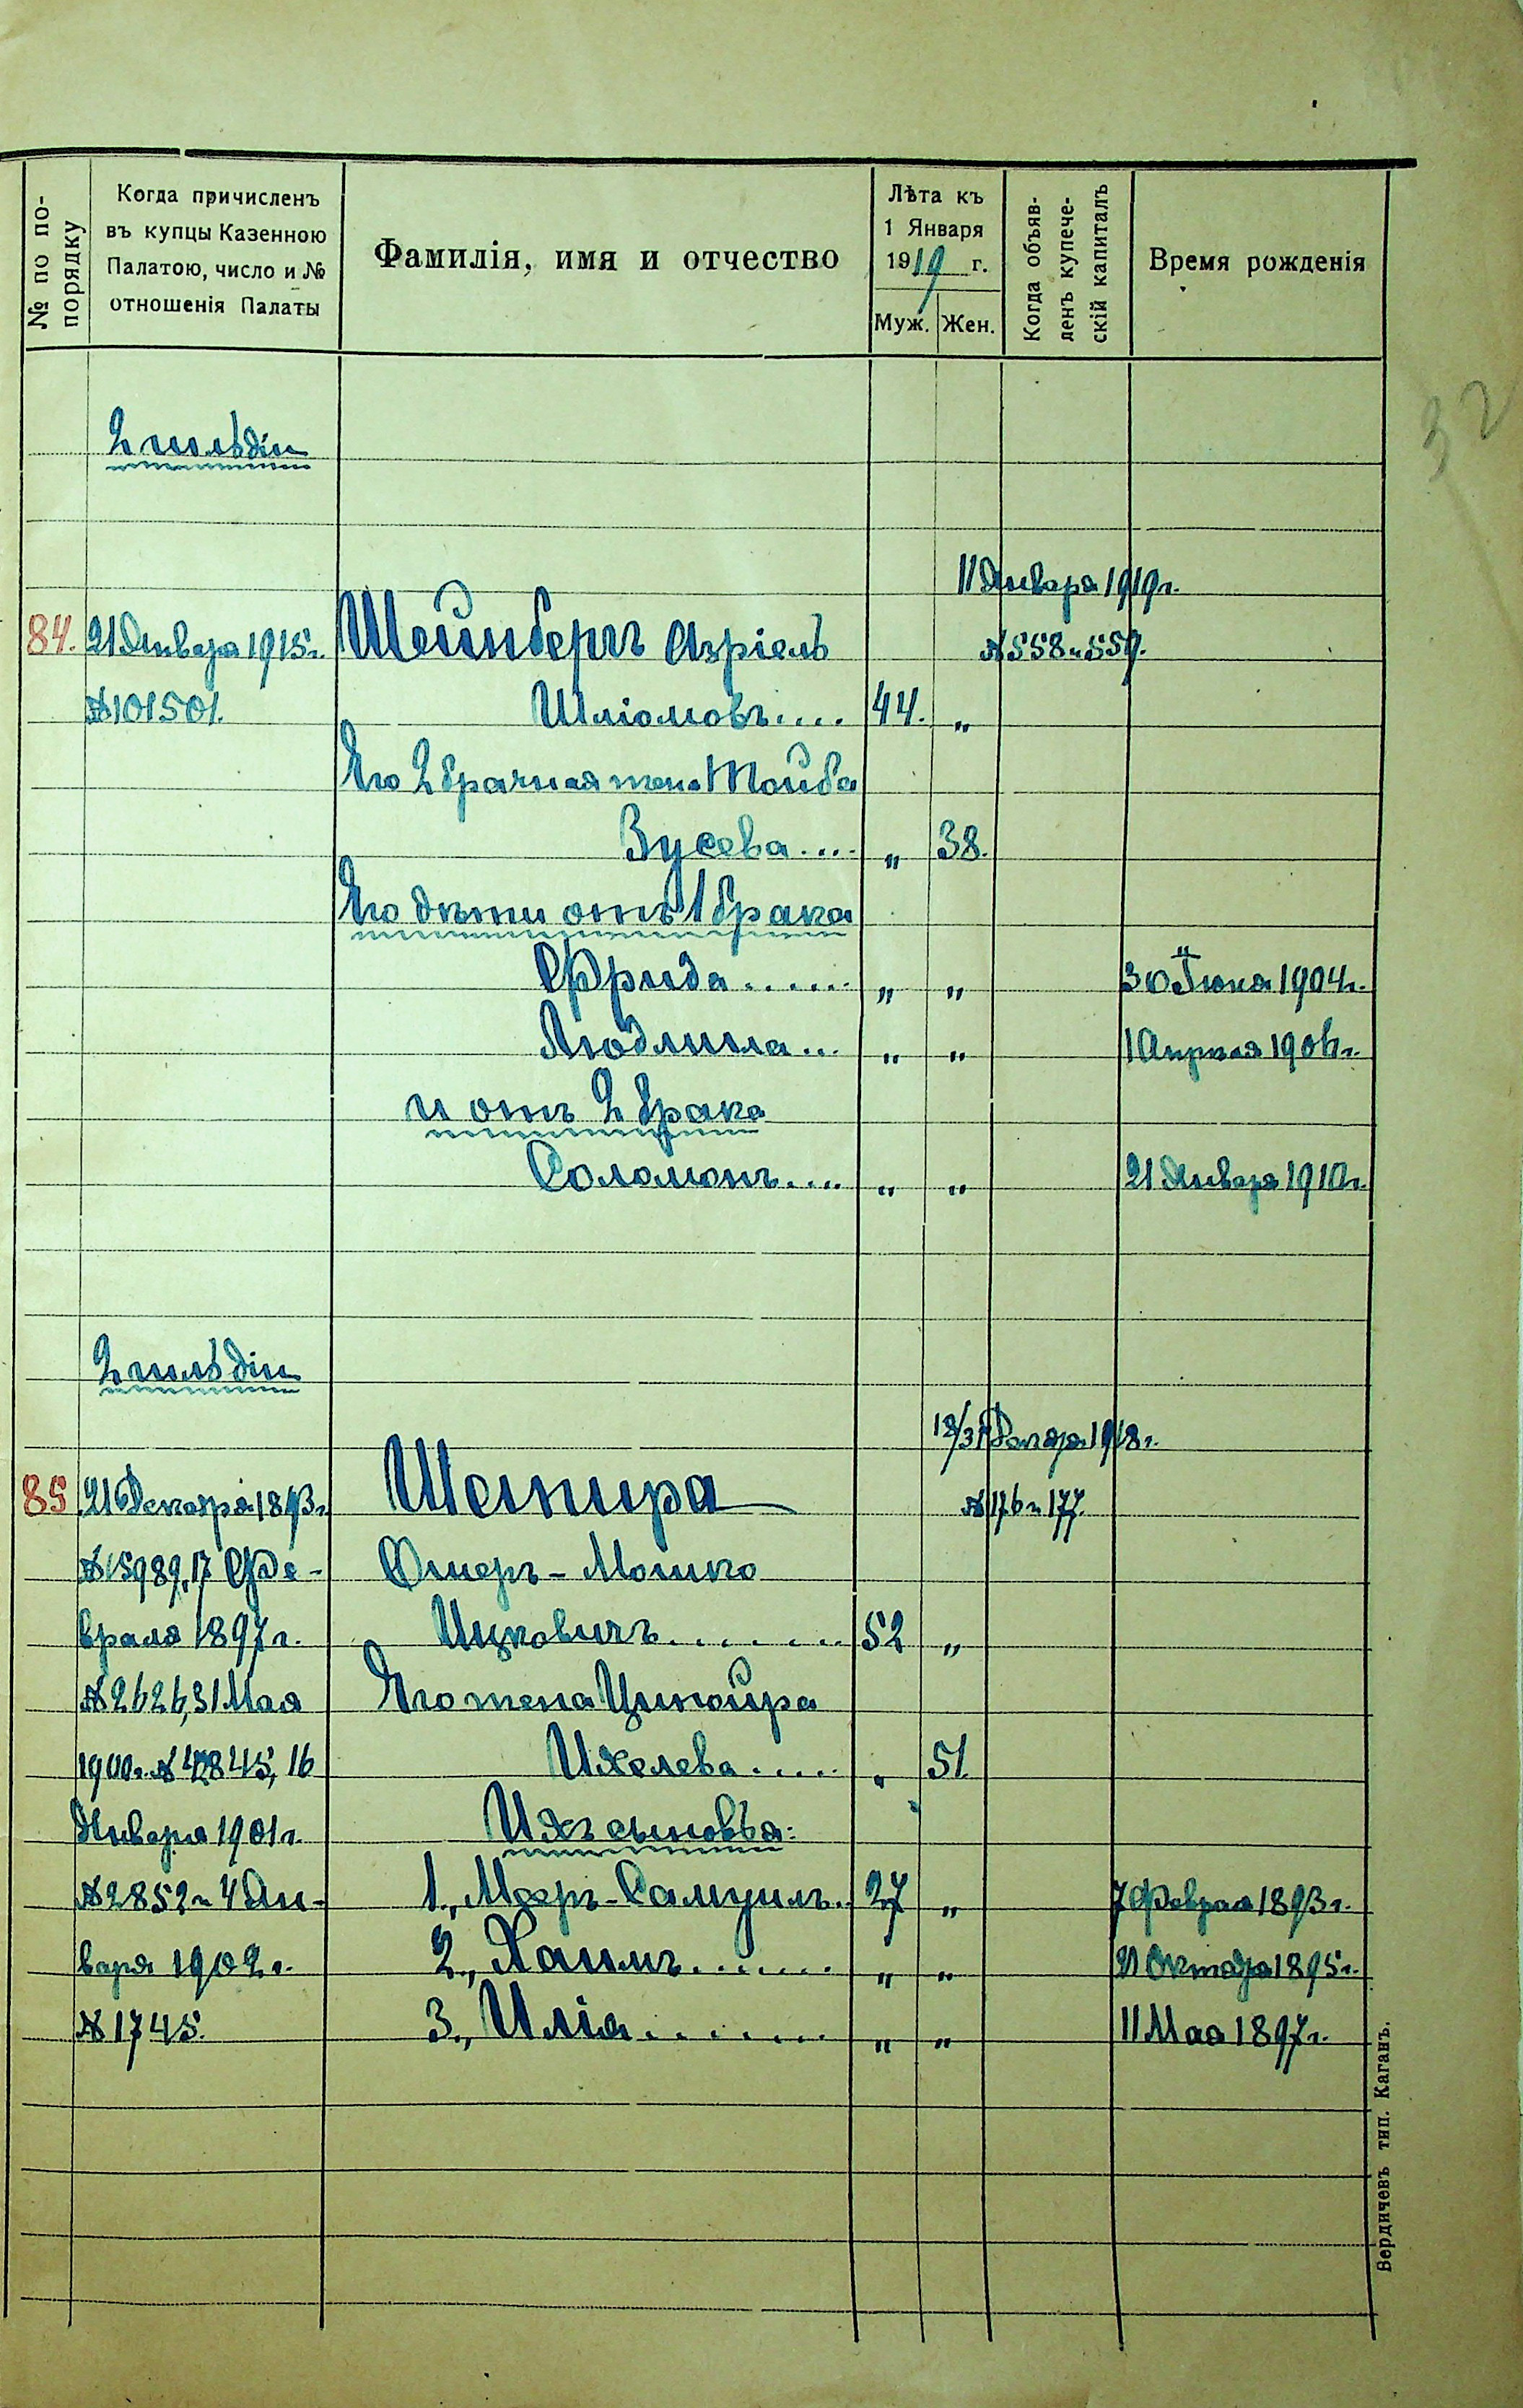 № по по-
порядку
Когда причисленъ
въ купцы Казенною
Палатою, число и №
отношенія Палаты
Фамилія, имя и отчество
Лѣта къ
1 Января
1919 г.
Муж. Жен.
Когда объяв-
ленъ купече-
скій капиталъ
Время рожденія
32
2 гильдіи
11 Января 1919 г.
84. 21 Января 1915 г. Шейнбергъ Азріель № 558 и 559.
№ 101501. Шліомовъ.... 44. „
Его 2 брачная жена Тойба
Зусева.... „ 38.
Его дѣти отъ 1 брака
Фрида...... „ „ 30 Іюня 1904 г.
Людмила... „ „ 1 Апрѣля 1906 г.
и отъ 2 брака
Соломонъ.... „ „ 21 Января 1910 г.
2 гильдіи
18/31 Декабря 1918 г.
85 21 Декабря 1893 г. Шепира № 176 и 177.
№ 15989, 17 Фе- Омеръ-Мошко
враля 1897 г. Ицковичъ....... 52 „
№ 2626, 31 Мая Его жена Ципойра
1900 г. № 12845, 16 Ихелева..... „ 51.
Января 1901 г. Ихъ сыновья:
№ 2852 и 4 Ян- 1., Меръ-Самуилъ.. 27 „ 7 Февраля 1893 г.
варя 1902 г. 2., Хаимъ....... „ „ 21 Октября 1895 г.
№ 1745. 3., Илія........ „ „ 11 Мая 1897 г.
Бердичевъ тип. Каганъ.